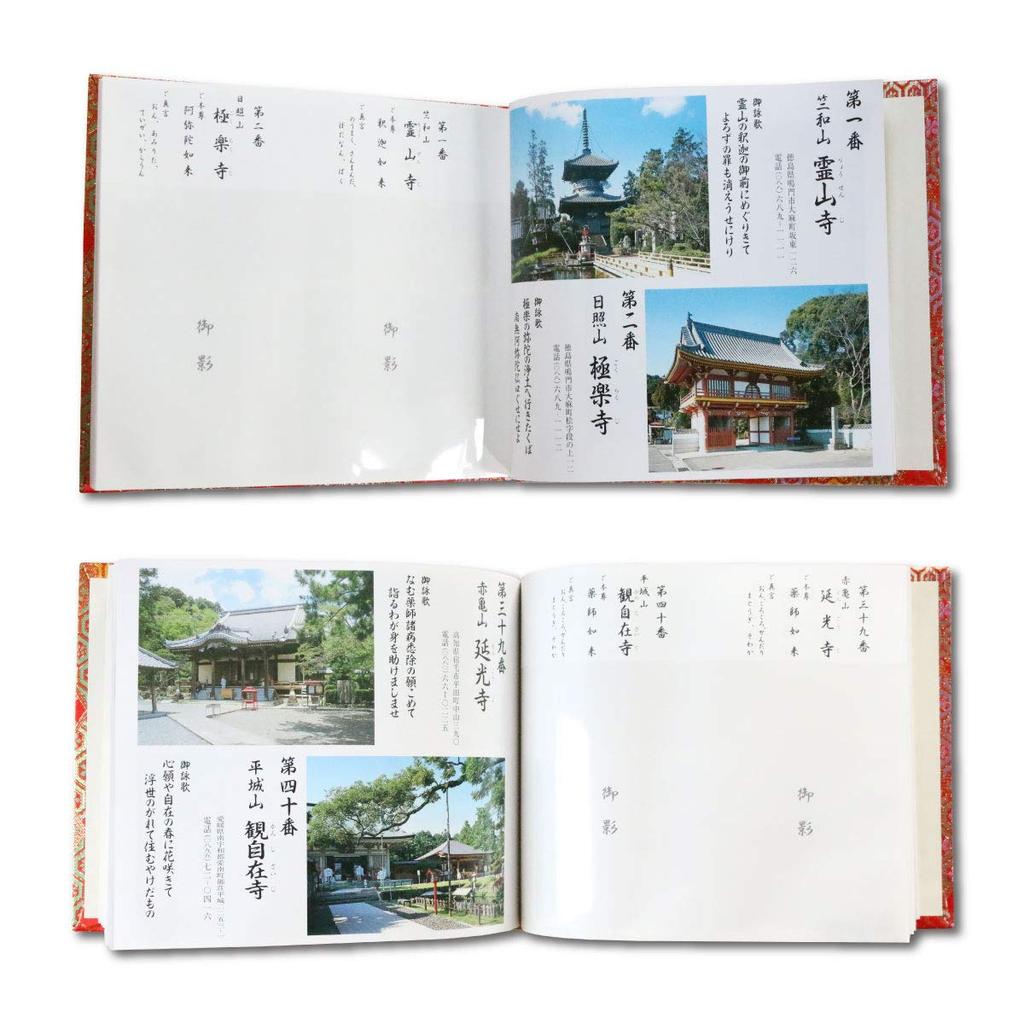 第一番
竺和山 霊山寺
りょうぜんじ
徳島県鳴門市大麻町坂東一二六
電話(〇八八)六八九-一一一一
御詠歌
霊山の釈迦の御前にめぐりきて
よろずの罪も消えうせにけり
第二番
日照山 極楽寺
ごくらくじ
徳島県鳴門市大麻町桧字段の上一二
電話(〇八八)六八九-一一一二
御詠歌
極楽の弥陀の浄土へ行きたくば
南無阿弥陀仏口ぐせにせよ
第一番
竺和山
霊山寺
ご本尊
釈迦如来
ご真言
のうまく、さんまんだ、
ぼだなん、ばく
御影
第二番
日照山
極楽寺
ご本尊
阿弥陀如来
ご真言
おん、あみりた、
ていぜい、からうん
御影
第三十九番
赤亀山
延光寺
ご本尊
薬師如来
ご真言
おん、ころころ、せんだり
まとうぎ、そわか
御影
第四十番
平城山
観自在寺
ご本尊
薬師如来
ご真言
おん、ころころ、せんだり
まとうぎ、そわか
御影
第三十九番
赤亀山 延光寺
高知県宿毛市平田町中山三九〇
電話(〇八八〇)六六-〇二二五
御詠歌
なむ薬師諸病悉除の願こめて
詣るわが身を助けましませ
第四十番
平城山 観自在寺
かんじざいじ
愛媛県南宇和郡愛南町御荘平城二二五三-一
電話(〇八九五)七二-〇四一六
御詠歌
心願や自在の春に花咲きて
浮世のがれて住むやけだもの